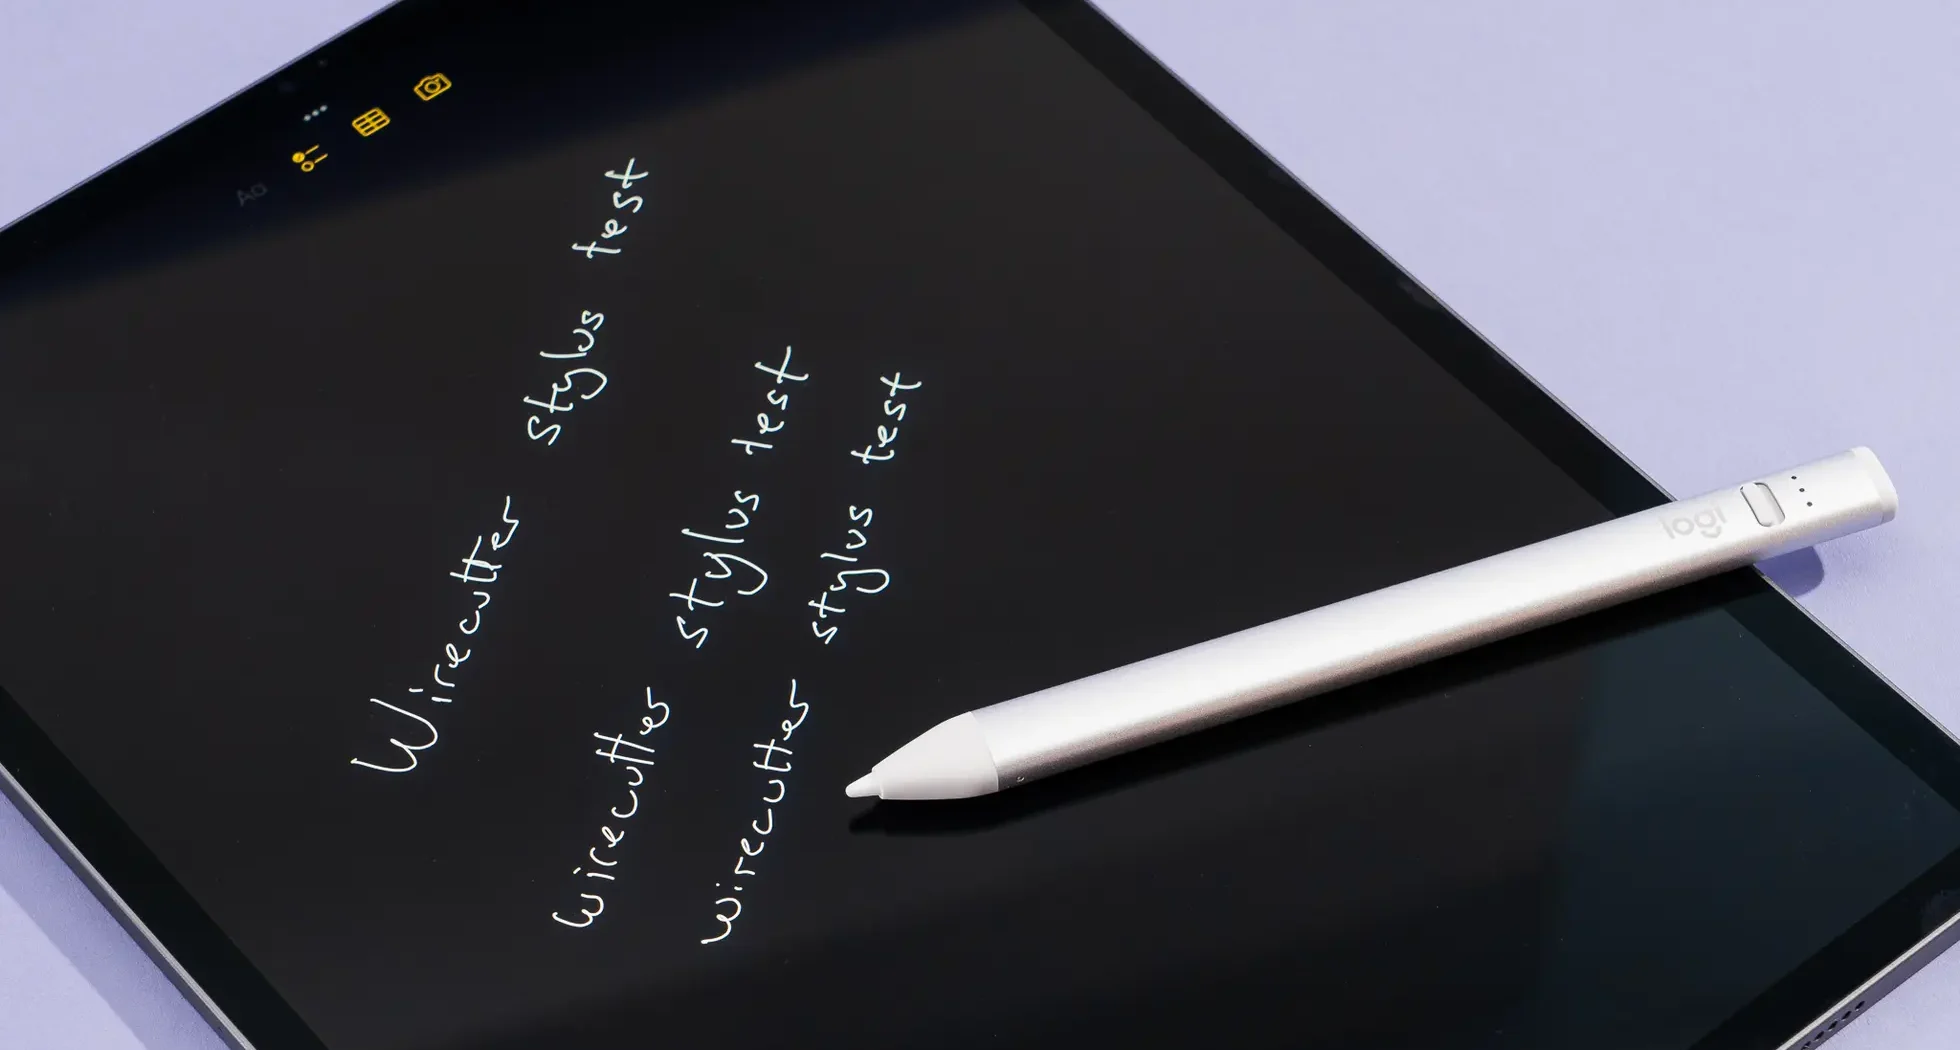 Aa
Wirecutter stylus test
Wirecutter stylus test
wirecutter stylus test
logi